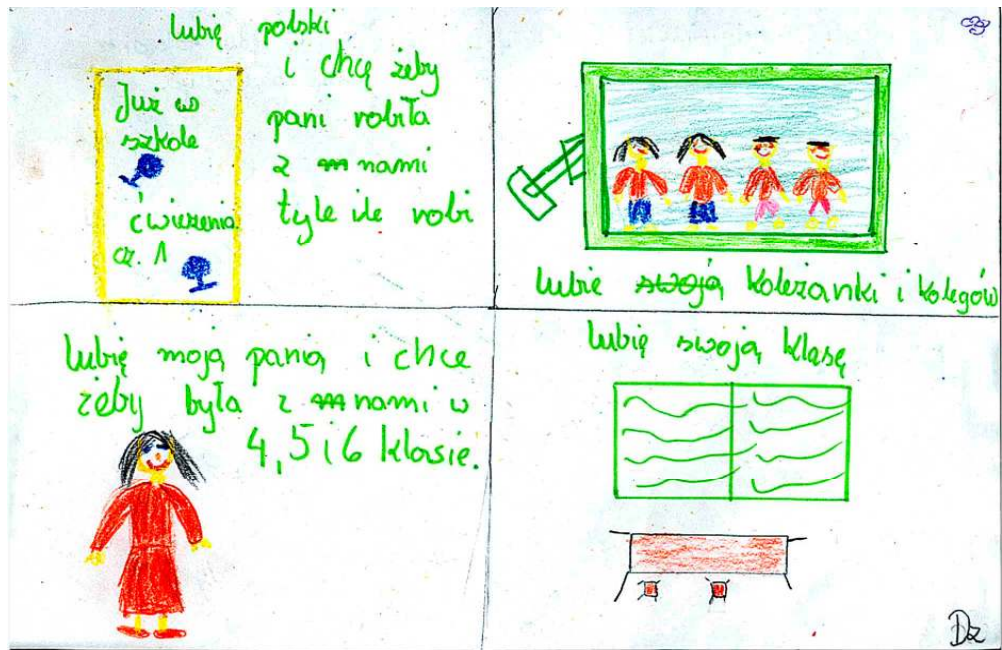 lubię polski
i chcę żeby
pani robiła
z nami
tyle ile robi
Już w
szkole
ćwiczenia
cz. 1
lubię swoją koleżanki i kolegów
lubię moją panią i chce
żeby była z nami w
4, 5 i 6 klasie.
lubię swoją klasę
Dz